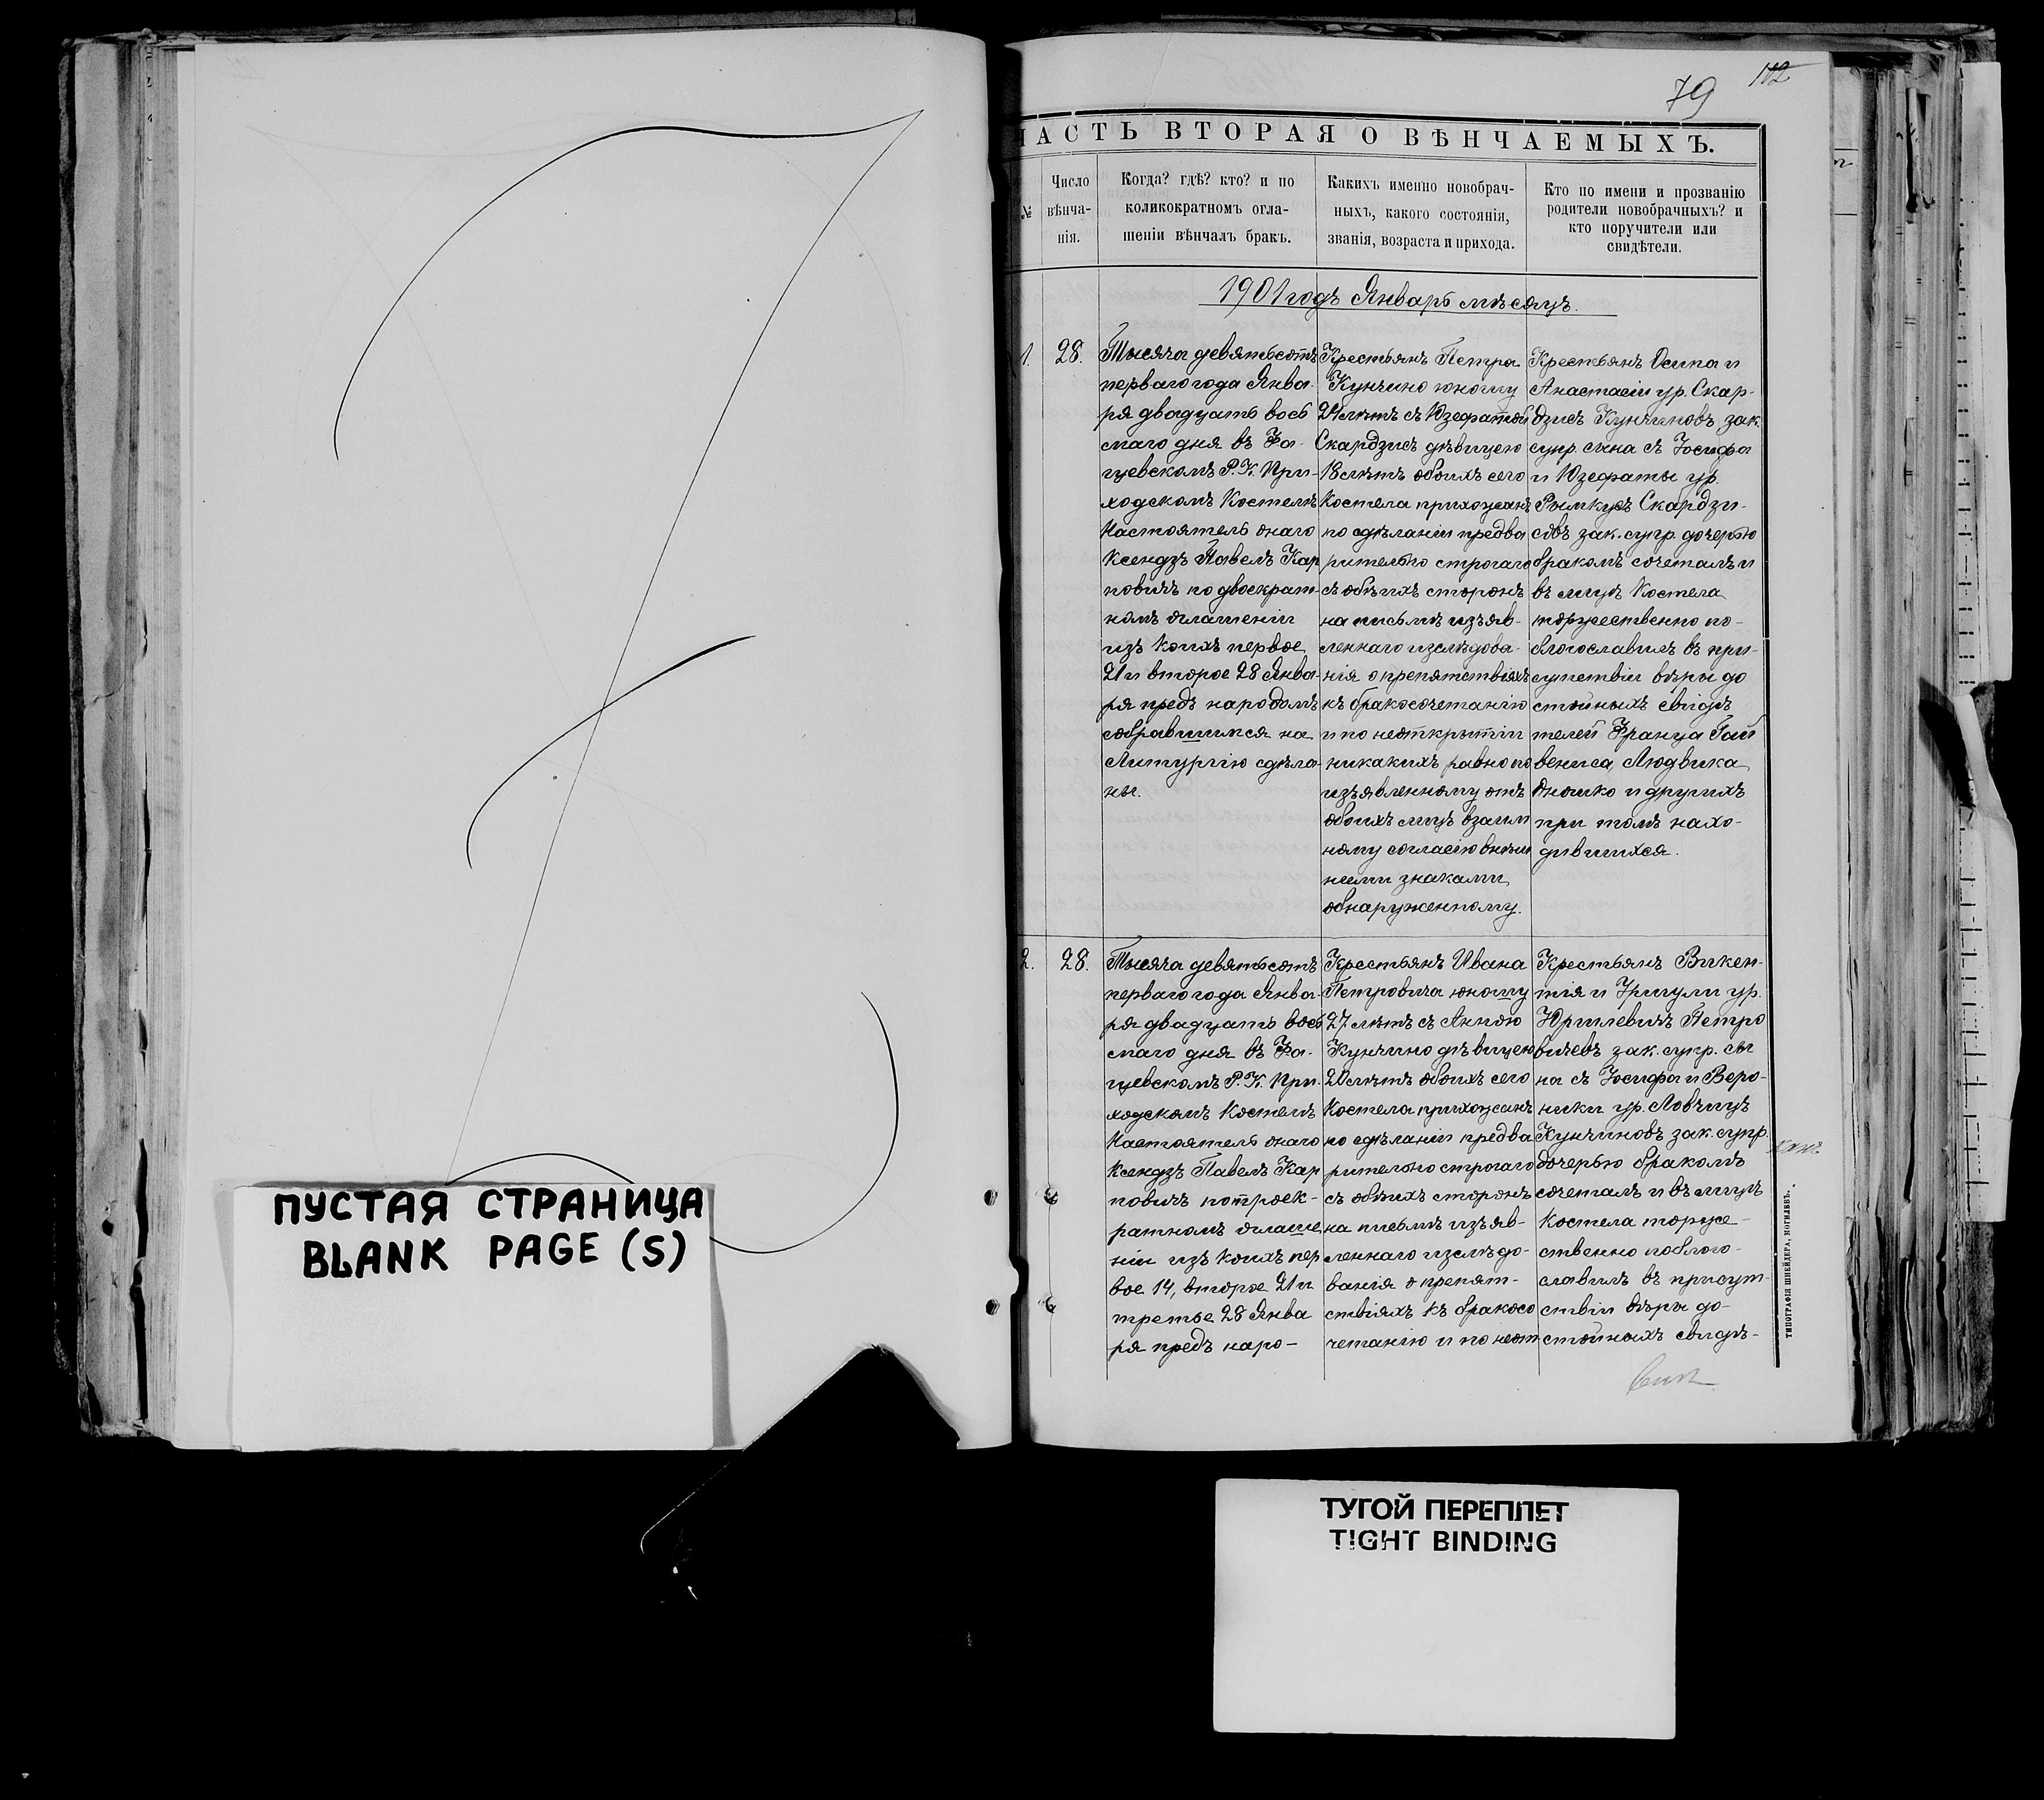 ПУСТАЯ СТРАНИЦА
BLANK PAGE (S)
79 112
ЧАСТЬ ВТОРАЯ О ВѢНЧАЕМЫХЪ.
№
Число
вѣнча-
нія.
Когда? гдѣ? кто? и по
коликократномъ огла-
шеніи вѣнчалъ бракъ.
Какихъ именно новобрач-
ныхъ, какого состоянія,
званія, возраста и прихода.
Кто по имени и прозванію
родители новобрачныхъ? и
кто поручители или
свидѣтели.
1901 годъ Январь мѣсяцъ.
1.
28.
Тысяча девятьсотъ
перваго года Янва-
ря двадцать вось
маго дня въ Фа-
щевскомъ Р. К. При-
ходскомъ Костелѣ
Настоятель онаго
Ксендзъ Павелъ Кар
повичъ по двоекрат-
номъ оглашеніи
изъ коихъ первое
21 и второе 28 Янва-
ря предъ народомъ
собравшимся на
Литургію сдѣла-
ны.
Крестьянъ Петра
Кунчино юношу
24 лѣтъ съ Юзефатой
Скардзисъ дѣвицею
18 лѣтъ обоихъ сего
Костела прихожанъ
по сдѣланіи предва
рительно строгаго
съ обѣихъ сторонъ
на письмѣ изъяв-
леннаго изслѣдова-
нія о препятствіяхъ
къ бракосочетанію
и по неоткрытіи
никакихъ равно по
изъявленному отъ
обоихъ лицъ взаим
ному согласію внѣш
ними знаками
обнаруженному.
Крестьянъ Осипа и
Анастасіи ур. Скар-
дзисъ Кунчиновъ зак.
супр. сына съ Іосифа
и Юзефаты ур.
Рымкусъ Скардзи-
совъ зак. супр. дочерью
бракомъ сочеталъ и
въ лицѣ Костела
торжественно по-
благославилъ въ при-
сутствіи вѣры до
стойныхъ свидѣ
телей Франца Гай
вениса, Людвика
Дношко и другихъ
при томъ нахо-
дившихся.
2.
28.
Тысяча девятьсотъ
перваго года Янва-
ря двадцать вось
маго дня въ Фа-
щевскомъ Р. К. При-
ходскомъ Костелѣ
Настоятель онаго
Ксендзъ Павелъ Кар
повичъ по троек-
ратномъ оглаше
ніи изъ коихъ пер
вое 14, второе 21 и
третье 28 Янва
ря предъ наро-
Крестьянъ Ивана
Петровича юношу
27 лѣтъ съ Анною
Кунчино дѣвицею
20 лѣтъ обоихъ сего
Костела прихожанъ
по сдѣланіи предва
рительно строгаго
съ обѣихъ сторонъ
на письмѣ изъяв-
леннаго изслѣдо-
ванія о препят-
ствіяхъ къ бракосо
четанію и по неот
Крестьянъ Викен-
тія и Уршули ур.
Юршевичъ Петро
вичевъ зак. супр. сы
на съ Іосифа и Веро-
ники ур. Ловчицъ
Кунчиновъ зак. супр.
дочерью бракомъ
сочеталъ и въ лицѣ
Костела торже-
ственно поблаго-
славилъ въ присут-
ствіи вѣры до-
стойныхъ свидѣ-
ТИПОГРАФІЯ ШНЕЙДЕРА, МОГИЛЕВЪ.
ТУГОЙ ПЕРЕПЛЕТ
TIGHT BINDING